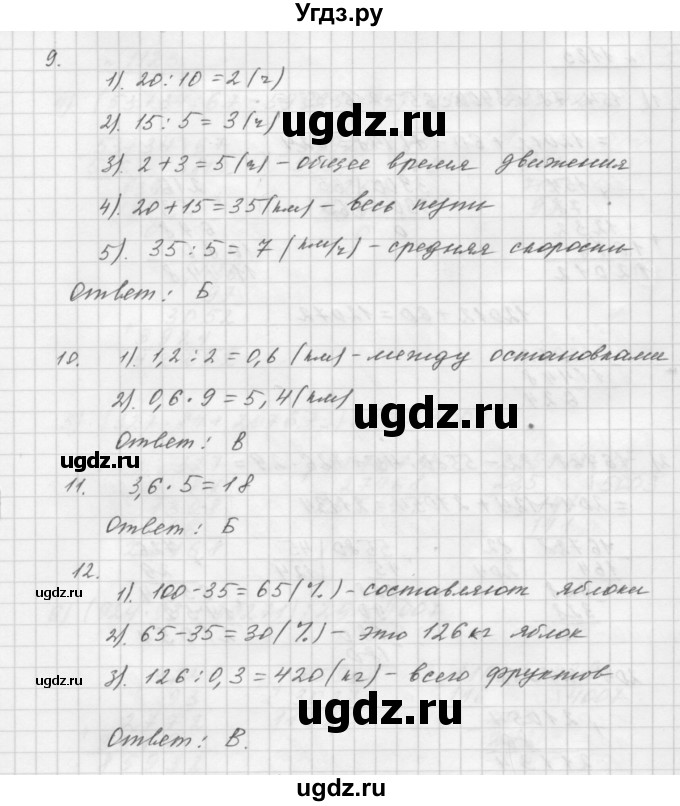 Угдз.ру
9.
1). 20 : 10 = 2 (ч)
2). 15 : 5 = 3 (ч)
ugdz.ru
3). 2 + 3 = 5 (ч) - общее время движения
ugdz.ru
4). 20 + 15 = 35 (км) - весь путь
5). 35 : 5 = 7 (км/ч) - средняя скорость
Ответ: Б
10. 1). 1,2 : 2 = 0,6 (км) - между остановками
2). 0,6 · 9 = 5,4 (км)
ugdz.ru
Ответ: В
ugdz.ru
11. 3,6 · 5 = 18
Ответ: Б
12.
1). 100 - 35 = 65 (%) - составляют яблоки
ugdz.ru
2). 65 - 35 = 30 (%) - это 126 кг яблок
3). 126 : 0,3 = 420 (кг) - всего фруктов
ugdz.ru
ugdz.ru
Ответ: В.
ugdz.ru